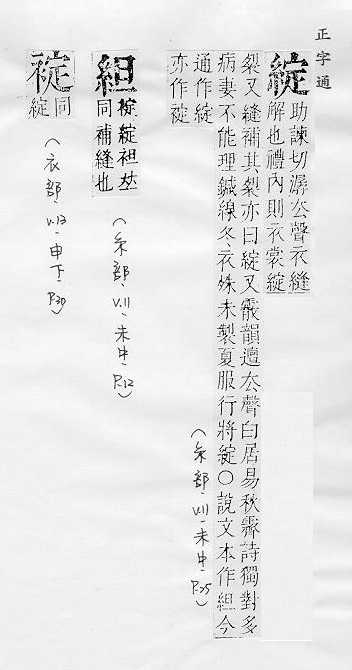 正字通
綻
助諫切潺去聲衣縫
解也禮内則衣裳綻
裂又縫補其裂亦曰綻又霰韻邅去聲白居易秋霽詩獨對多
病妻不能理鍼線冬衣殊未製夏服行將綻○說文本作組今
通作綻
亦作䘺
(糸部、V.11-未中-P.25)
組
椗綻袒𠀤
同補縫也
(糸部、V.11-未中-P.12)
䘺
同
綻
(衣部、V.12-申下-P.30)